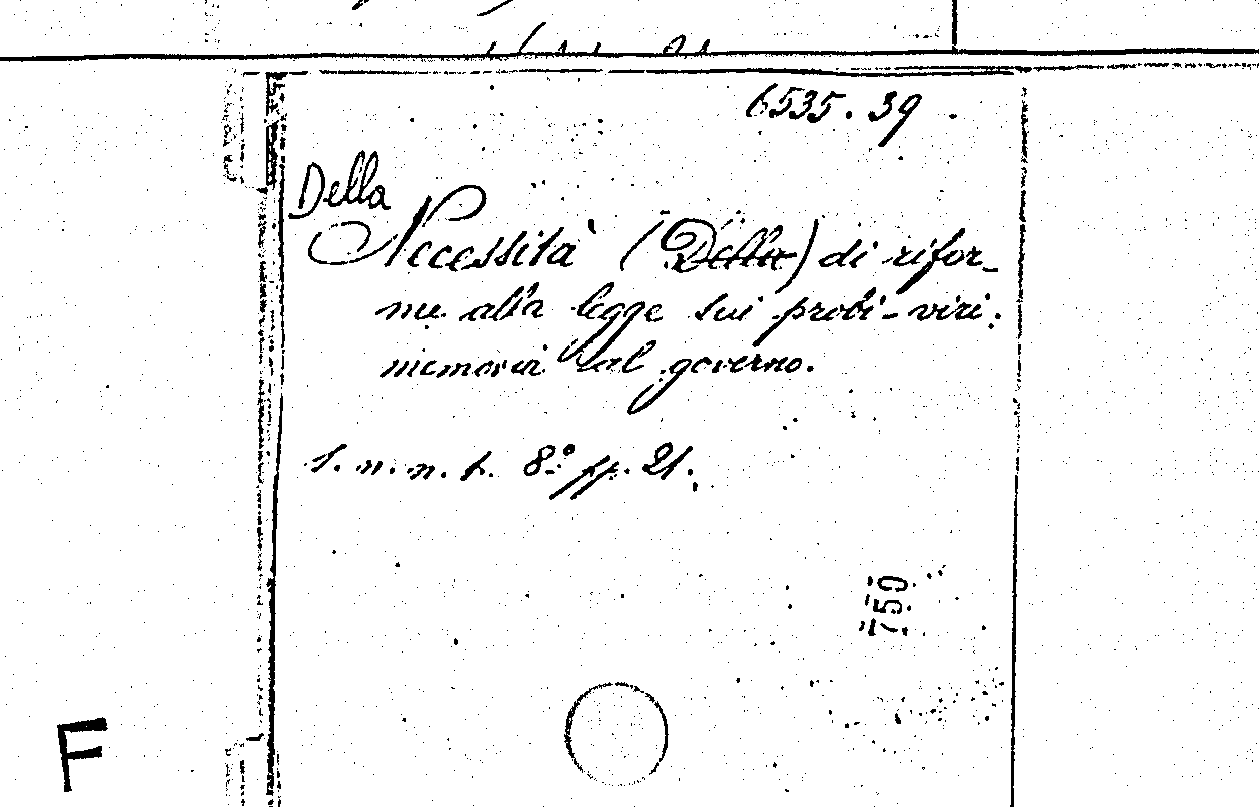 6535.39.
Della
Necessità (Della) di rifor-
me alla legge sui probi-viri:
memoria al governo.
s. n. n. t. 8° pp. 21.
750
F